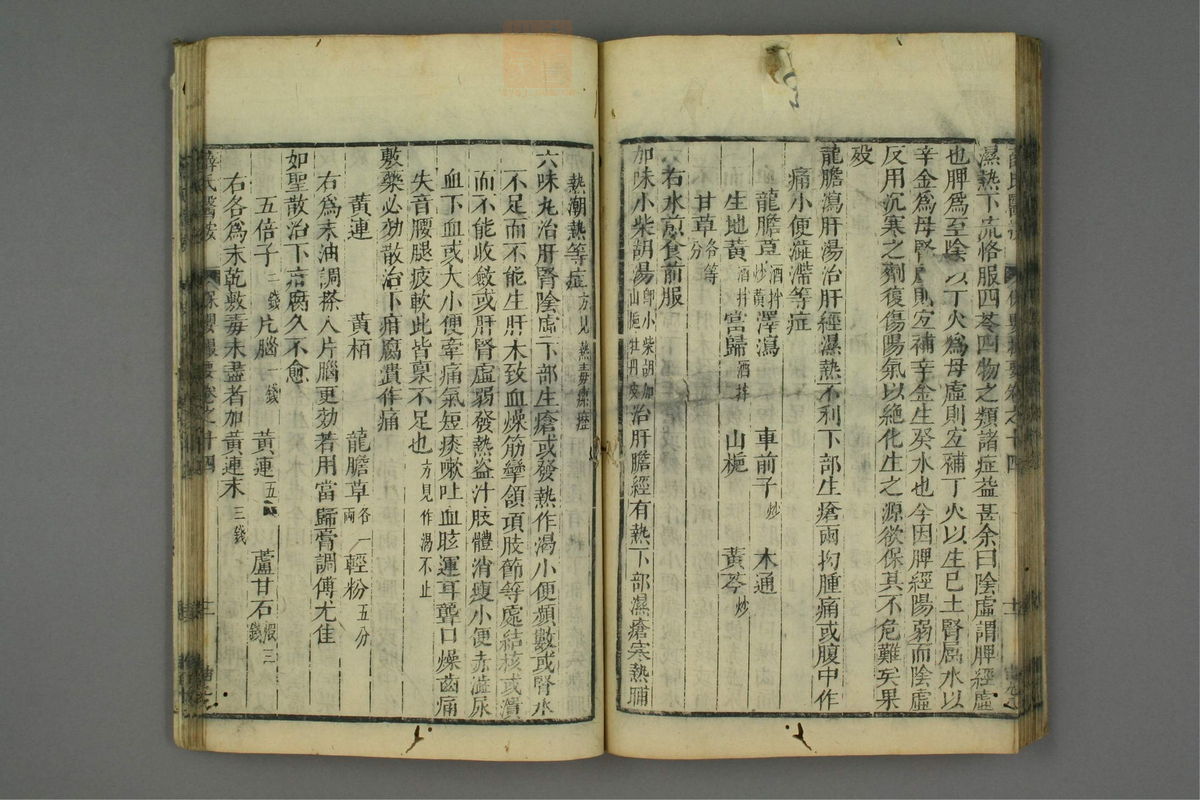 濕熱下流恪服四苓四物之類諸症益甚余曰陰虛謂脾經虛
也脾爲至陰以丁火爲母虛則宜補丁火以生巳土腎屬水以
辛金爲母腎虛則宜補辛金生癸水也今因脾經陽弱而陰虛
反用沉寒之劑復傷陽氣以絶化生之源欲保其不危難矣果
殁
龍膽瀉肝湯治肝經濕熱不利下部生瘡兩拗腫痛或腹中作
痛小便澁滯等症
龍膽草酒拌炒黄 澤瀉 車前子炒 木通
生地黄酒拌 當歸酒拌 山梔 黄芩炒
甘草各等分
右水煎食前服
加味小柴胡湯卽小柴胡加山梔牡丹皮 治肝膽經有熱下部濕瘡寒熱晡
熱潮熱等症方見熱毒瘰癧
六味丸治肝腎陰虛下部生瘡或發熱作渴小便頻數或腎水
不足而不能生肝木致血燥筋攣頷項肢節等處結核或潰
而不能收斂或肝腎虛弱發熱盗汁肢體消瘦小便赤澁尿
血下血或大小便牽痛氣短痰嗽吐血眩運耳聾口燥齒痛
失音腰腿疲軟此皆稟不足也方見作渴不止
敷藥必効散治下疳腐潰作痛
黄連 黄栢 龍膽草各一兩 輕粉五分
右爲末油調搽入片腦更効若用當歸膏調傅尤佳
如聖散治下疳腐久不愈
五倍子二錢 片腦一錢 黄連五 蘆甘石煅三錢
右各爲末乾敷毒未盡者加黄連末三錢
薛氏醫案 保嬰撮要卷之十四